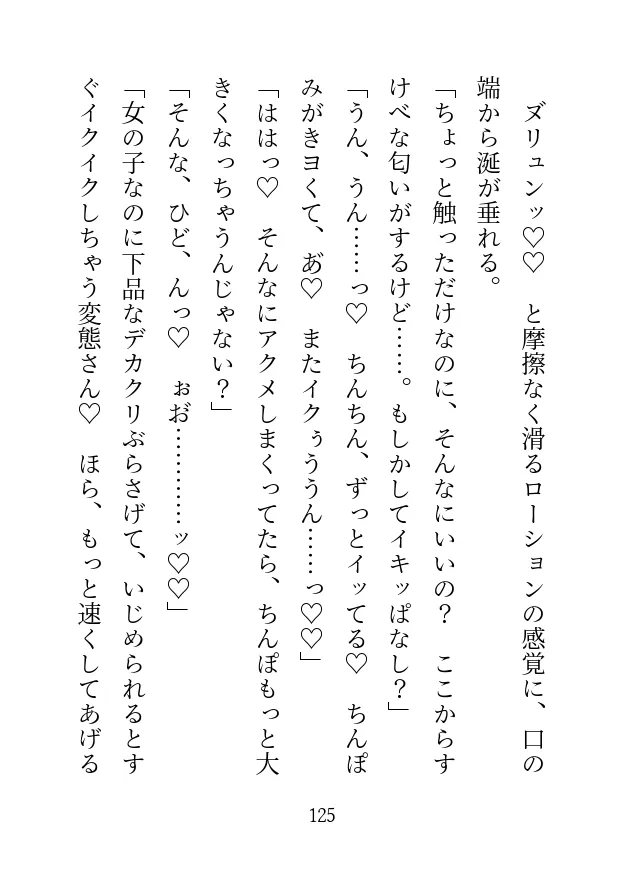 ヌ゙リュンッ♡♡　と摩擦なく滑るローションの感覚に、口の
端から涎が垂れる。
「ちょっと触っただけなのに、そんなにいいの？　ここからす
けべな匂いがするけど……。もしかしてイキッぱなし？」
「うん、うん……っ♡　ちんちん、ずっとイッてる♡　ちんぽ
みがきヨくて、あ゙♡　またイクぅううん……っ♡♡」
「ははっ♡　そんなにアクメしまくってたら、ちんぽもっと大
きくなっちゃうんじゃない？」
「そんな、ひど、んっ♡　ぉお゙…………ッ♡♡」
「女の子なのに下品なデカクリぶらさげて、いじめられるとす
ぐイクイクしちゃう変態さん♡　ほら、もっと速くしてあげる
125